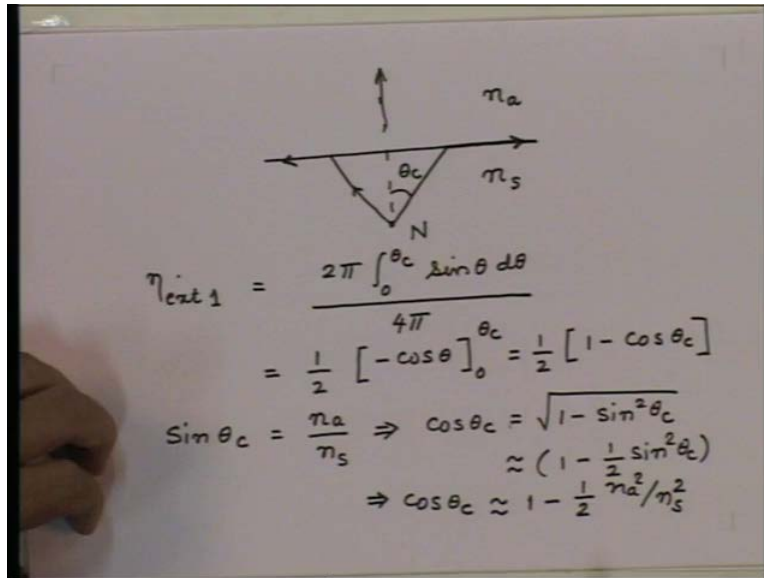 n_a
θc
n_s
N
η_ext 1 = 2π ∫₀^θc sin θ dθ / 4π
= 1/2 [-cos θ]₀^θc = 1/2 [1 - cos θc]
Sin θc = n_a/n_s ⇒ cos θc = √(1 - sin²θc)
≈ (1 - 1/2 sin²θc)
⇒ cos θc ≈ 1 - 1/2 n_a²/n_s²